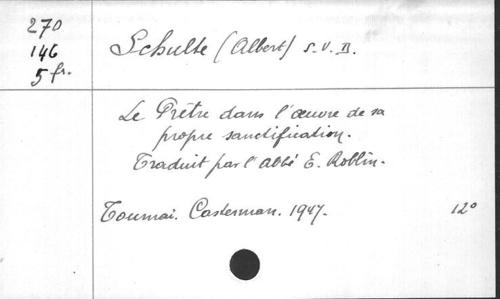 270
146
5 fr.
Schulte (Albert) S.V.D.
Le Prêtre dans l'œuvre de sa
propre sanctification.
Traduit par l'abbé E. Roblin.
Tournai. Casterman. 1947. 12°